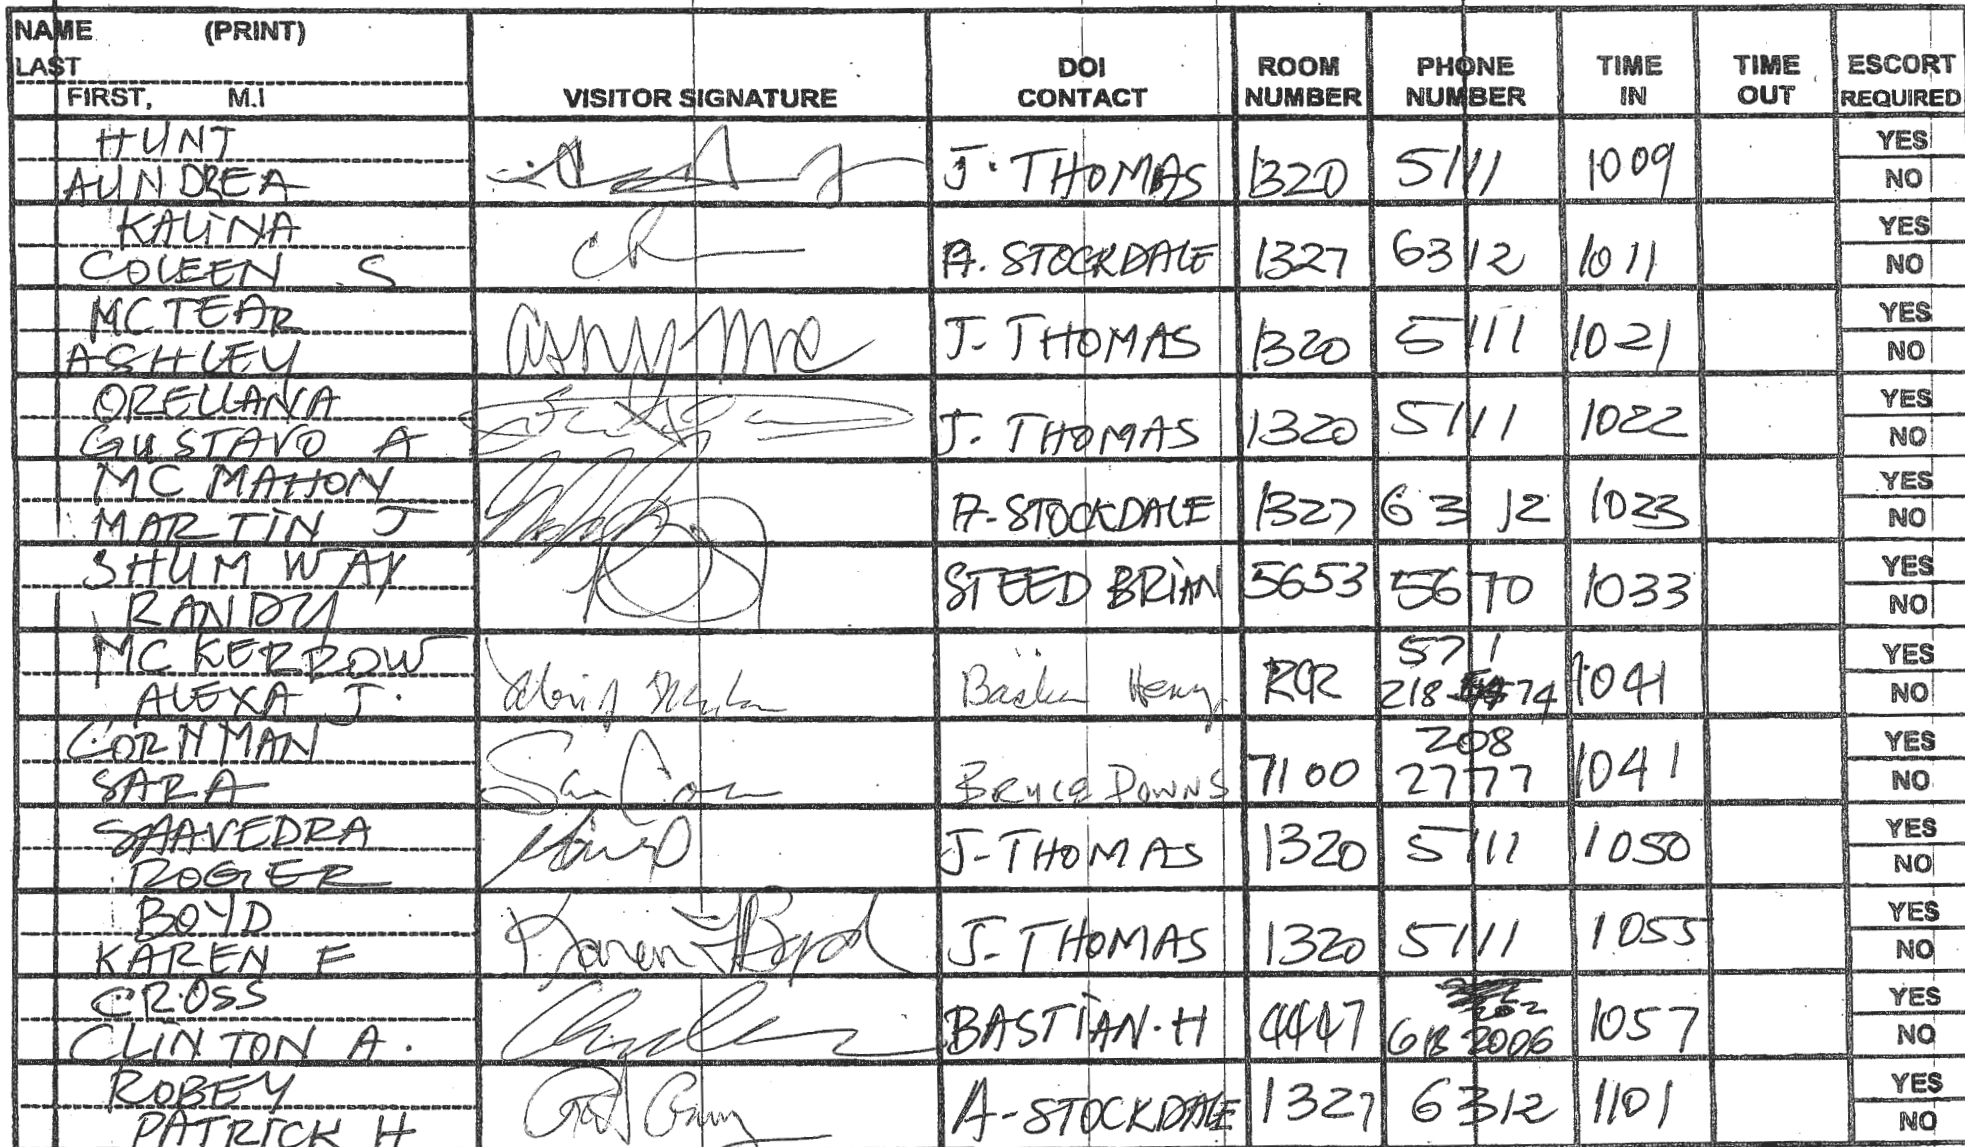 NAME (PRINT)
LAST
FIRST, M.I
VISITOR SIGNATURE
DOI CONTACT
ROOM NUMBER
PHONE NUMBER
TIME IN
TIME OUT
ESCORT REQUIRED
HUNT
AUNDREA
J. THOMAS 1320 5111 1009 YES
NO
KALINA
COLEEN S
A. STOCKDALE 1327 6312 1011 YES
NO
MCTEAR
ASHLEY
J- THOMAS 1320 5111 1021 YES
NO
ORELLANA
GUSTAVO A
J. THOMAS 1320 5111 1022 YES
NO
MC MAHON
MARTIN J
A-STOCKDALE 1327 6312 1023 YES
NO
SHUMWAY
RANDY
STEED BRIAN 5653 5670 1033 YES
NO
MCKERROW
ALEXA J.
Henry 571
218 74 1041 YES
NO
CORNMAN
SARA
BRYCE DOWNS 7100 208
2777 1041 YES
NO
SAAVEDRA
ROGER
J-THOMAS 1320 5111 1050 YES
NO
BOYD
KAREN F
Karen F Boyd
J-THOMAS 1320 5111 1055 YES
NO
CROSS
CLINTON A.
BASTIAN.H 4447 202
2006 1057 YES
NO
ROBEY
PATRICK H
A-STOCKDALE 1327 6312 1101 YES
NO